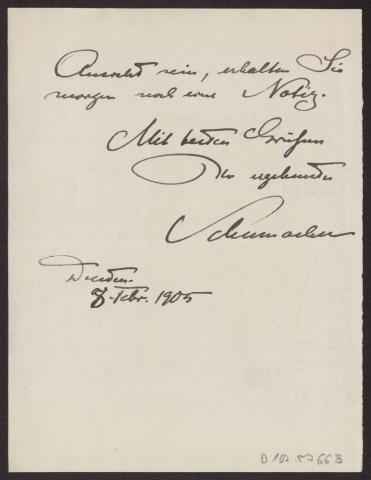 Ansicht sein, erhalten Sie
morgen noch eine Notiz.
Mit besten Grüßen
Ihr ergebenster
Schumacher
Dresden.
8. Febr. 1905
D 102.5766B